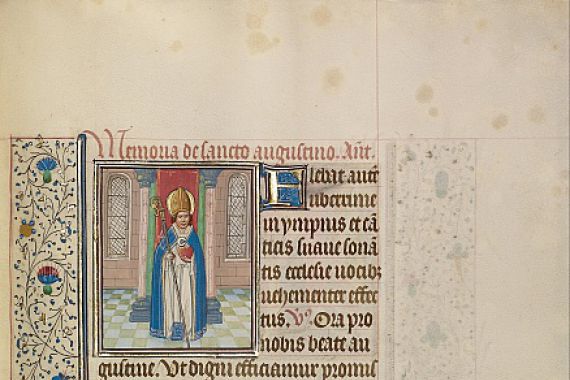 Memoria de sancto augustino. Añt.
Flebat autē
uberrime
in ympnis et cā
ticis suaue sonā
tis ecclesie uocibz
uehementer affec
tus. V̾. Ora pro
nobis beate au
gustine. Vt digni efficiamur promis